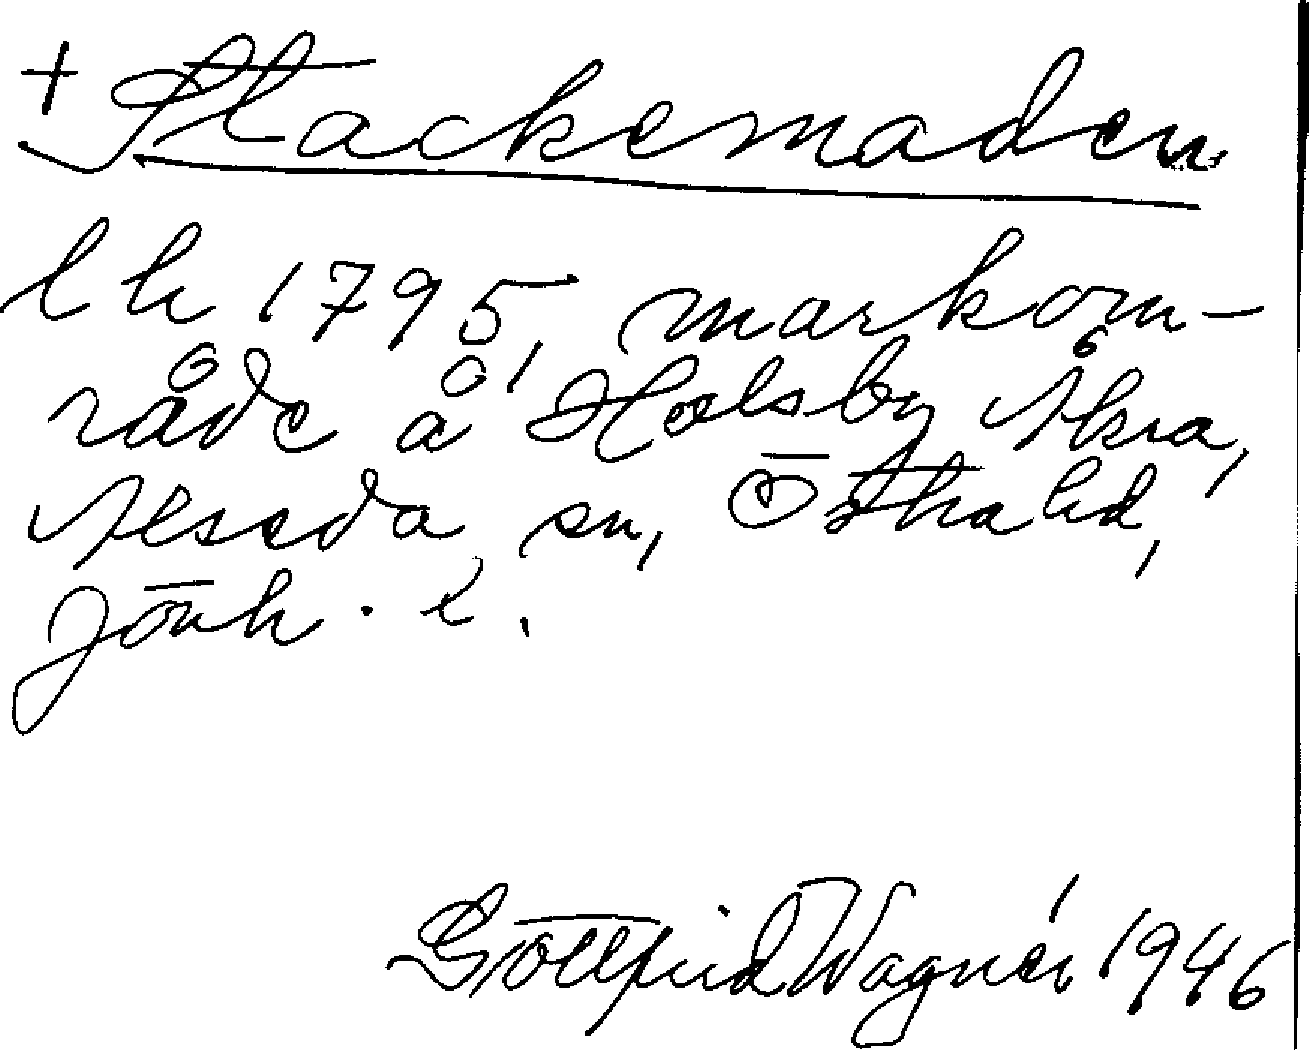 + Stackemaden
l h 1795, markom-
råde å Holsby Åkra,
Alseda sn, Östra hd,
Jönk. l.
Gottfrid Wagnér 1946